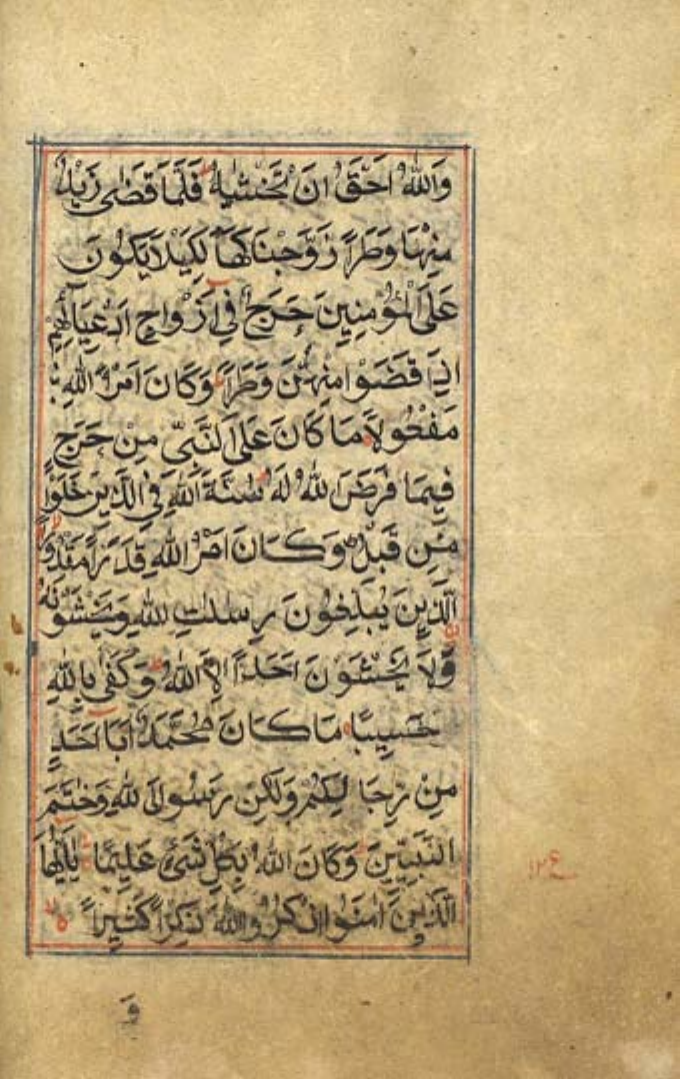 وَاللّٰهُ اَحَقُّ اَنْ تَخْشٰىهُ فَلَمَّا قَضٰى زَيْدٌ
مِنْهَا وَطَرًا زَوَّجْنَاكَهَا لِكَيْلَا يَكُوْنَ
عَلَى الْمُؤْمِنِيْنَ حَرَجٌ فِيْ اَزْوَاجِ اَدْعِيَآئِهِمْ
اِذَا قَضَوْا مِنْهُنَّ وَطَرًا وَكَانَ اَمْرُ اللّٰهِ
مَفْعُوْلًا مَا كَانَ عَلَى النَّبِيِّ مِنْ حَرَجٍ
فِيْمَا فَرَضَ اللّٰهُ لَهُ سُنَّةَ اللّٰهِ فِي الَّذِيْنَ خَلَوْا
مِنْ قَبْلُ وَكَانَ اَمْرُ اللّٰهِ قَدَرًا مَقْدُوْ
الَّذِيْنَ يُبَلِّغُوْنَ رِسٰلٰتِ اللّٰهِ وَيَخْشَوْنَهُ
وَلَا يَخْشَوْنَ اَحَدًا اِلَّا اللّٰهَ وَكَفٰى بِاللّٰهِ
حَسِيْبًا مَا كَانَ مُحَمَّدٌ اَبَآ اَحَدٍ
مِنْ رِجَالِكُمْ وَلٰكِنْ رَسُوْلَ اللّٰهِ وَخَتَمَ
النَّبِيِّيْنَ وَكَانَ اللّٰهُ بِكُلِّ شَيْءٍ عَلِيْمًا يٰٓاَيُّهَا
الَّذِيْنَ اٰمَنُوا اذْكُرُوا اللّٰهَ ذِكْرًا كَثِيْرًا
وَ